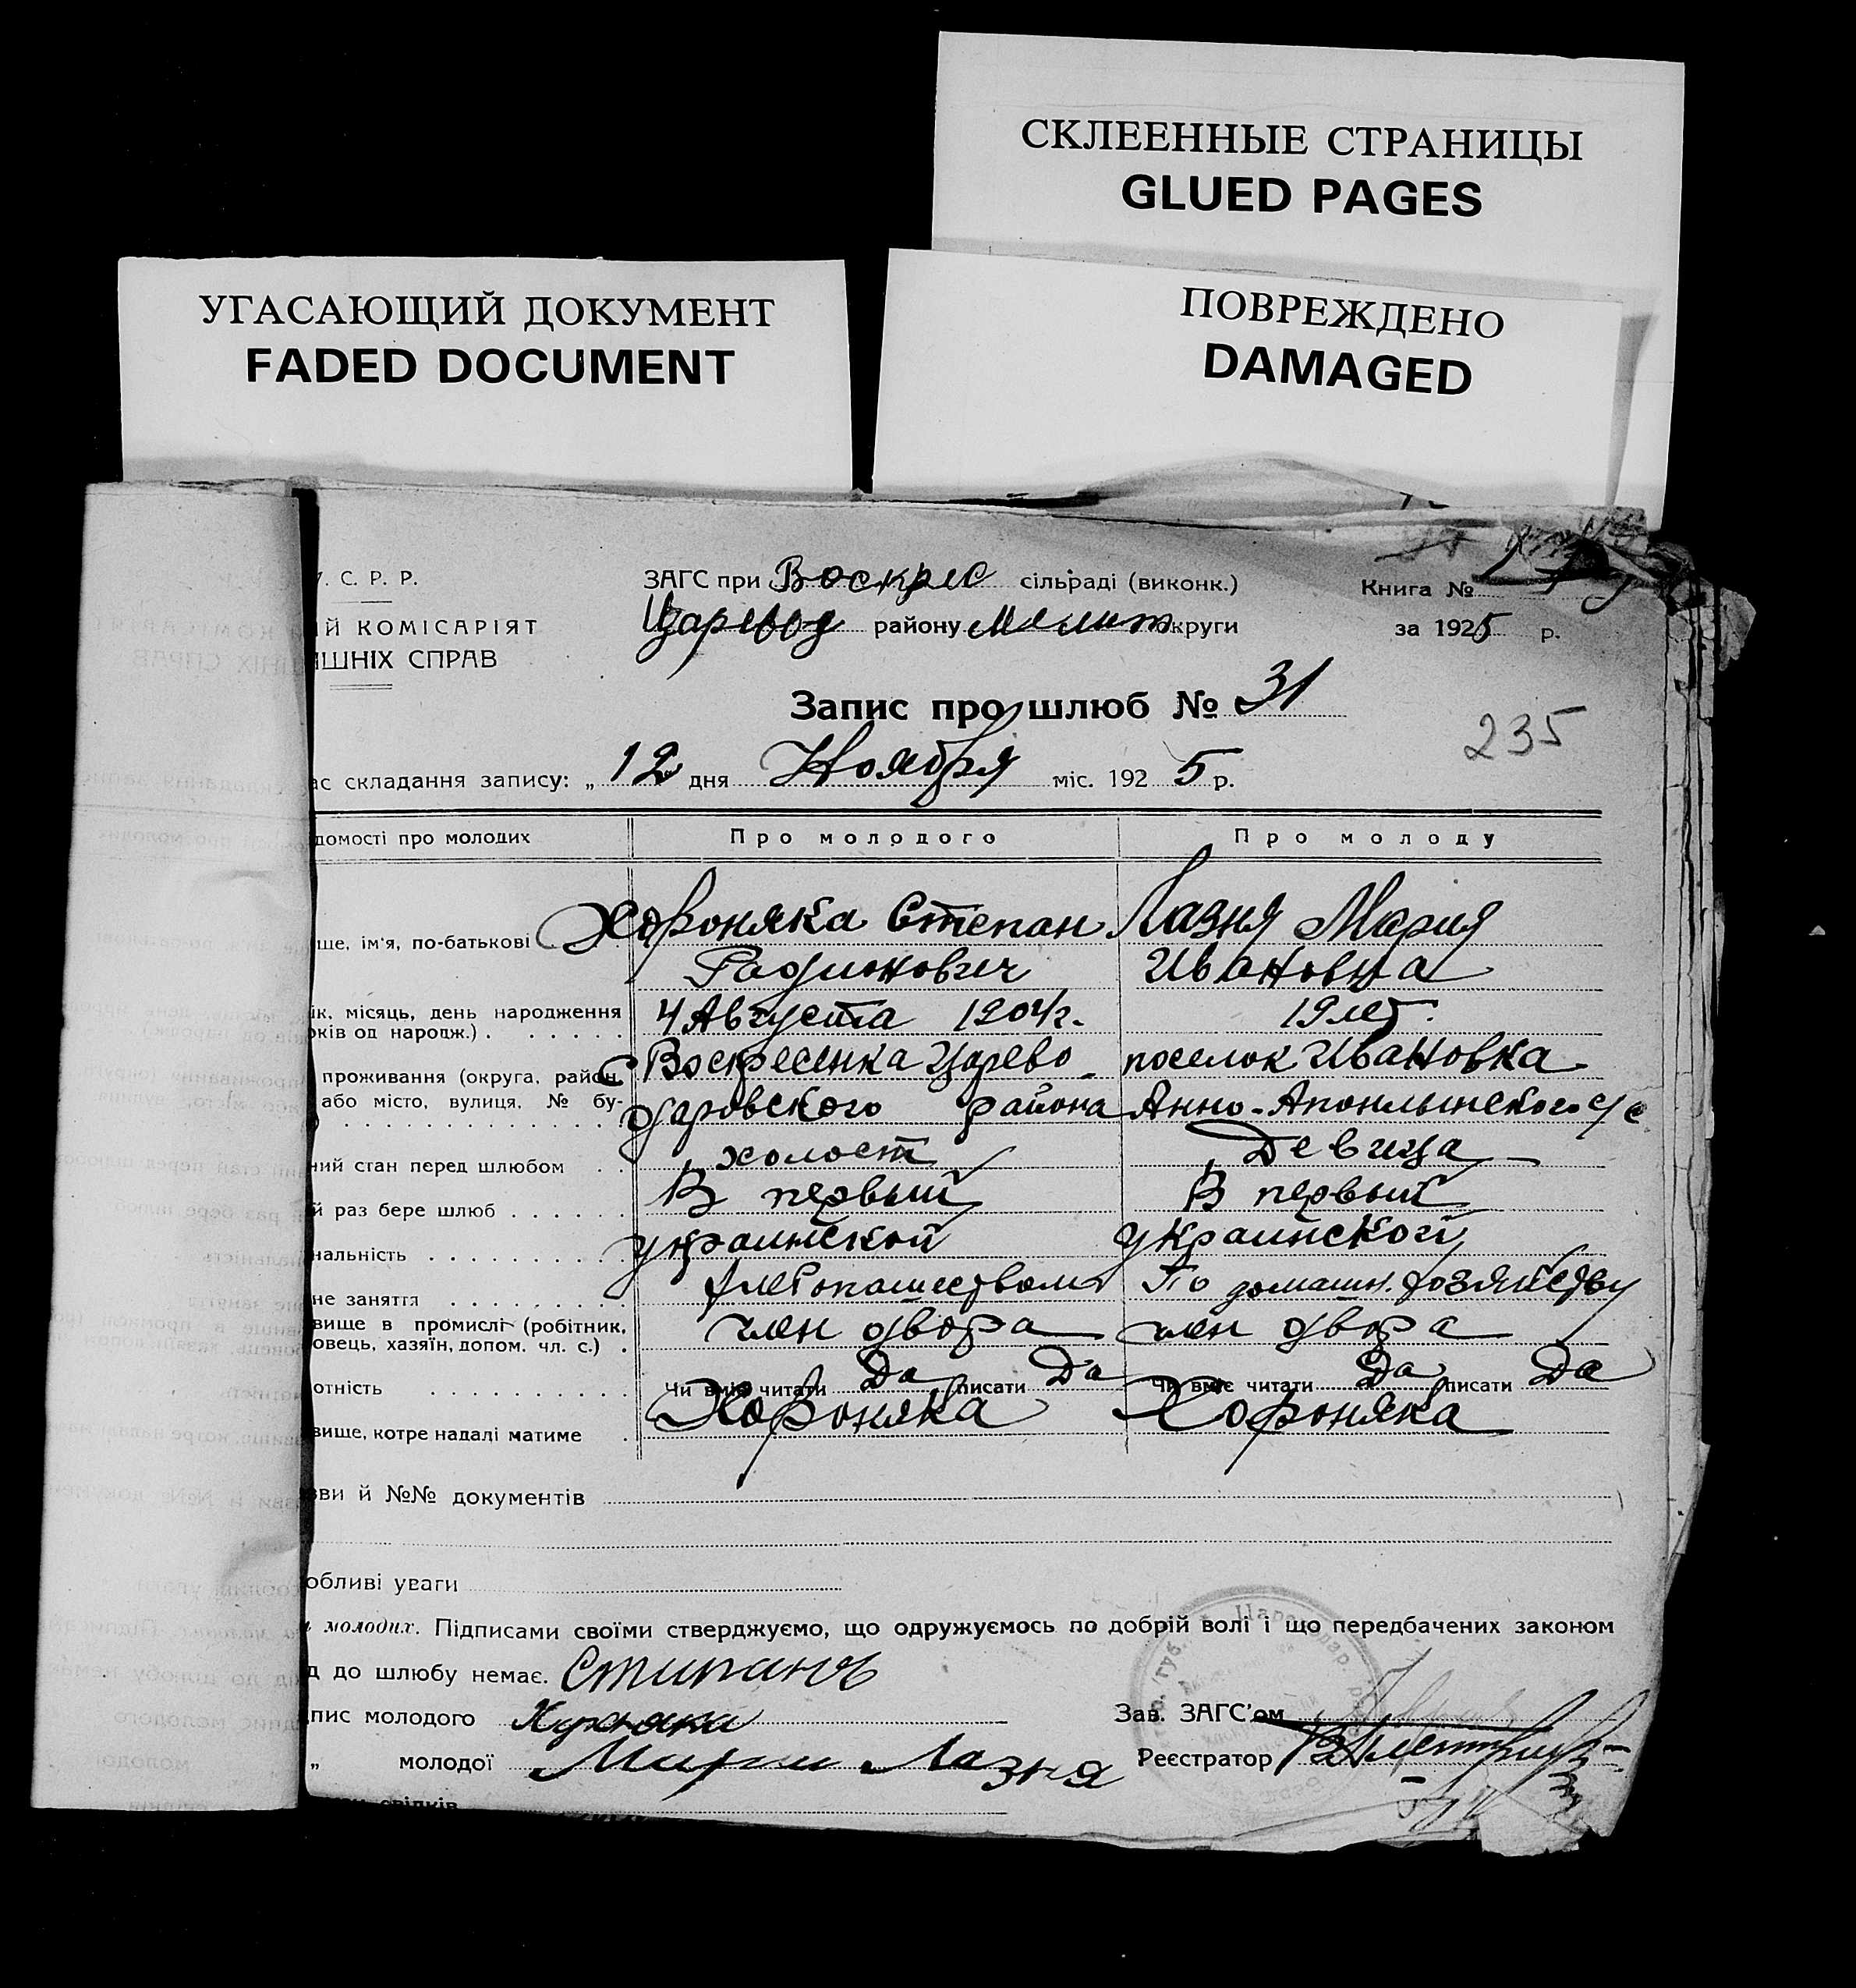 СКЛЕЕННЫЕ СТРАНИЦЫ
GLUED PAGES
УГАСАЮЩИЙ ДОКУМЕНТ
FADED DOCUMENT
ПОВРЕЖДЕНО
DAMAGED
У. С. Р. Р.
ИЙ КОМІСАРІЯТ
ІШНІХ СПРАВ
ЗАГС при Воскрес сільраді (виконк.)
Царевод району Мелит округи
Книга №
за 1925 р.
Запис про шлюб № 31
235
ас складання запису: „ 12 дня Ноября міс. 192 5 р.
домості про молодих
Про молодого
Про молоду
ще, ім'я, по-батькові
Хороняка Степан
Лазня Мария
Радионович
Ивановна
ік, місяць, день народження
оків од народж.)
4 Августа 1904 г.
19 лет.
проживання (округа, район,
або місто, вулиця, № бу-
С Воскресенка Царево
поселок Ивановка
даровского района
Анно-Апонлынского с/с
ний стан перед шлюбом
холост
Девица
й раз бере шлюб
В первый
В первый
нальність
украинской
украинской
не заняття
По домашн. хозяйству
вище в промислі (робітник,
овець, хазяїн, допом. чл. с.)
член двора
член двора
отність
Чи вміє читати Да писати Да
Чи вміє читати Да писати Да
вище, котре надалі матиме
Хороняка
Хороняка
зви й №№ документів
обливі уваги
молодих. Підписами своїми стверджуємо, що одружуємось по добрій волі і що передбачених законом
д до шлюбу немає. Стипанъ
дпис молодого
„ молодої Мария Лазня
Зав. ЗАГС'ом
Реєстратор